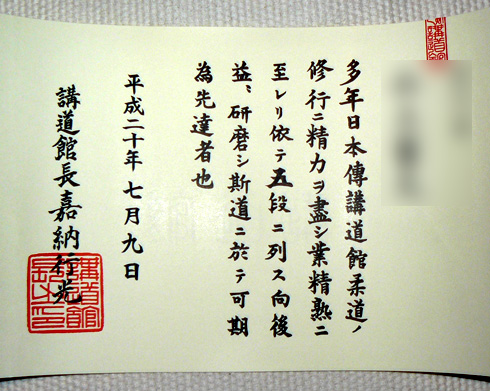 多年日本傳講道館柔道ノ
修行ニ精力ヲ盡シ業精熟ニ
至レリ依テ五段ニ列ス向後
益〻研磨シ斯道ニ於テ可期
為先達者也
平成二十年七月九日
講道館長嘉納行光